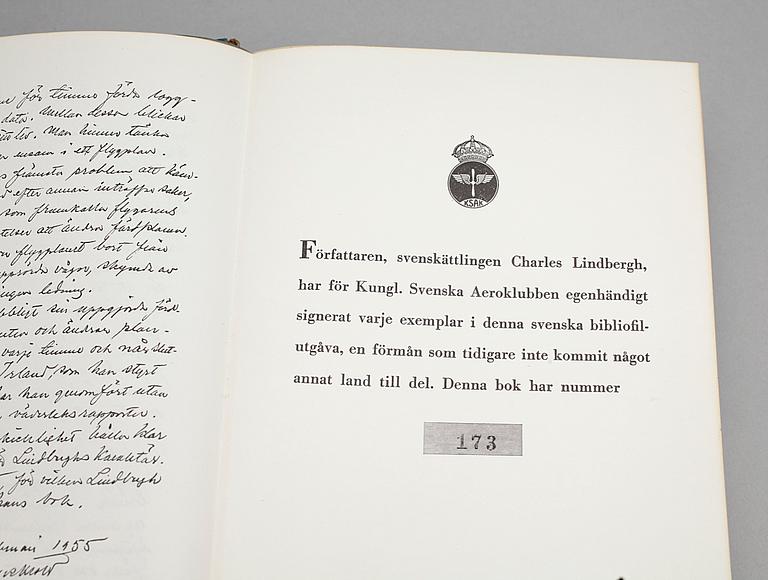 för timme förda logg-
data. Mellan dessa klickar
Man hinner tänka
ensam i ett flygplan.
främsta problem att kän-
efter annan inträffar saker,
som framkalla flygarens
att ändra färdplanen.
flygplanet bort från
vågor, skymde av
ledning.
sin uppgjorda färd-
och ändrar plan-
varje timme och när slut-
Irland, som han styrt
har han genomfört utan
väderleksrapporter.
hålla klar
Lindberghs karaktär.
för vilken Lindbergh
hans bok.
1955
KSAK
Författaren, svenskättlingen Charles Lindbergh,
har för Kungl. Svenska Aeroklubben egenhändigt
signerat varje exemplar i denna svenska bibliofil-
utgåva, en förmån som tidigare inte kommit något
annat land till del. Denna bok har nummer
173